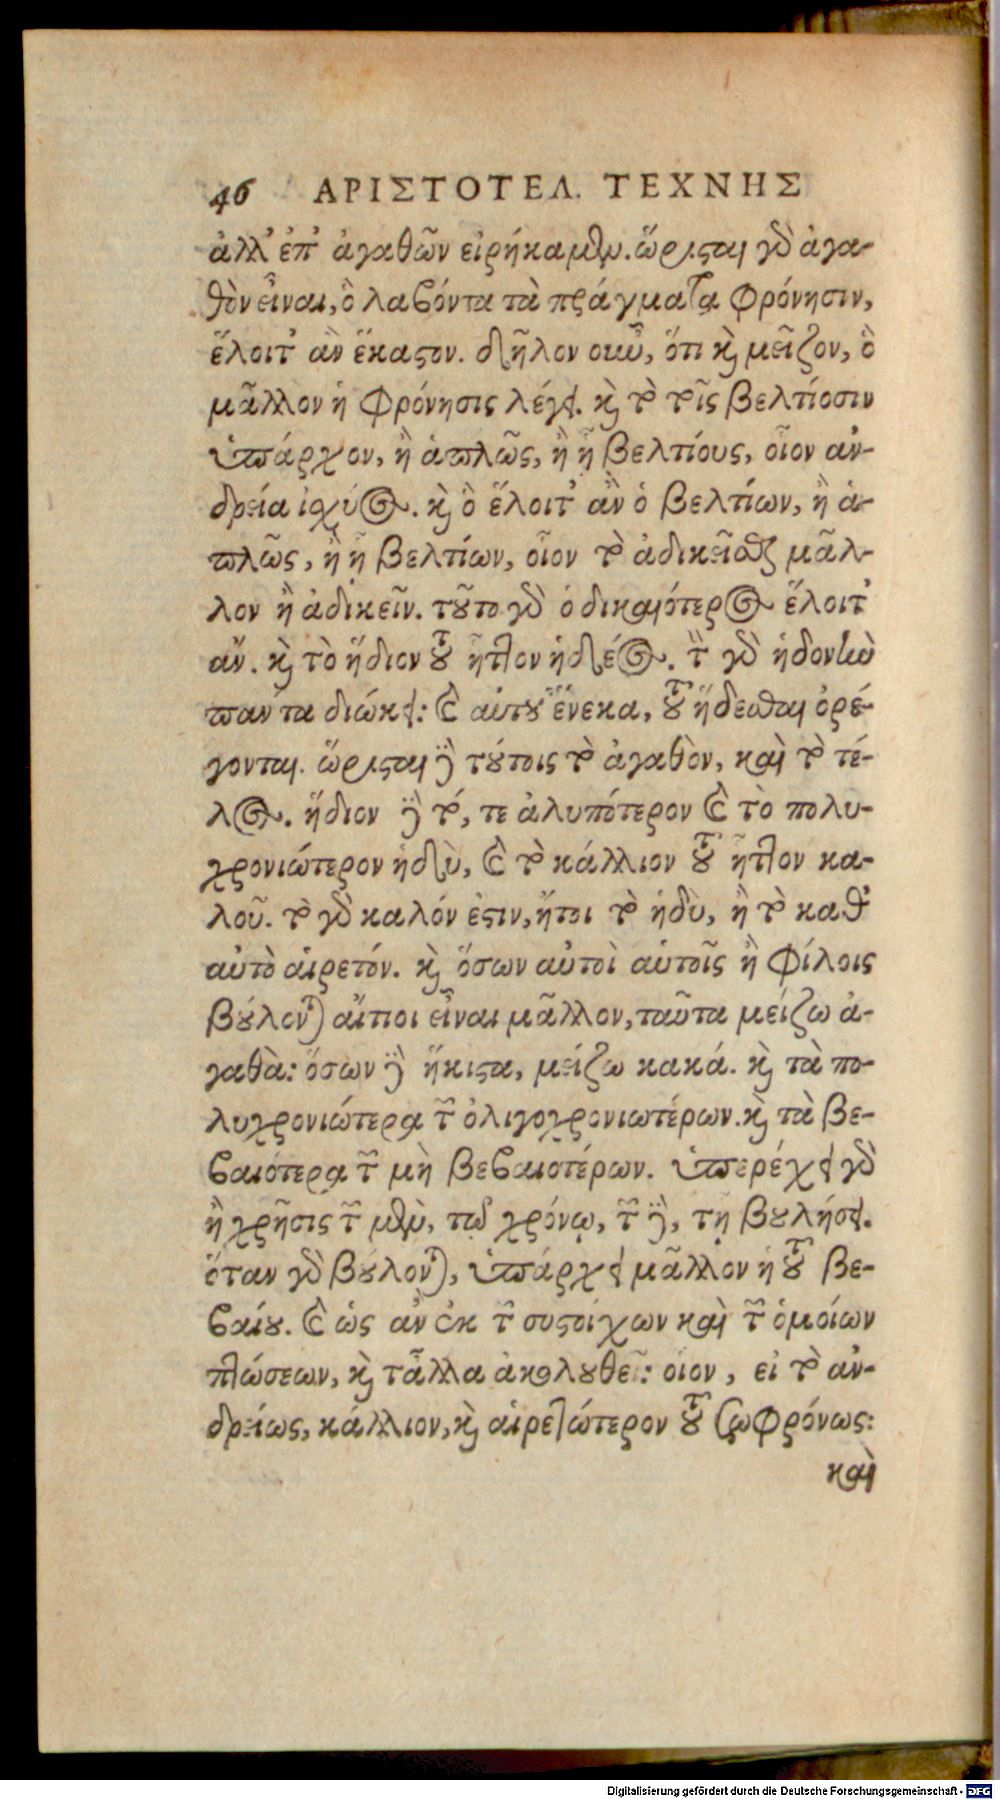 46 ΑΡΙΣΤΟΤΕΛ. ΤΕΧΝΗΣ
ἀλλ' ἐπ' ἀγαθῶν εἰρήκαμεν. ὥρισται γὸ ἀγα-
θὸν εἶναι, ὃ λαβόντα τὰ πράγματα φρόνησιν,
ἕλοιτ' ἂν ἕκαστον. δῆλον οὖν, ὅτι καὶ μεῖζον, ὃ
μᾶλλον ἡ φρόνησις λέγει. καὶ τὸ τοῖς βελτίοσιν
ὑπάρχον, ἢ ἁπλῶς, ἢ ᾗ βελτίους, οἷον ἀν-
δρεία ἰχύος. καὶ ὃ ἕλοιτ' ἂν ὁ βελτίων, ἢ ἁ-
πλῶς, ἢ ᾗ βελτίων, οἷον τὸ ἀδικεῖσθαι μᾶλ-
λον ἢ ἀδικεῖν. τοῦτο γὸ ὁ δικαιότερος ἕλοιτ'
ἄν. καὶ τὸ ἥδιον τοῦ ἧττον ἡδέος. τὴν γὸ ἡδονὴν
πάντα διώκει: καὶ αὑτοῦ ἕνεκα, τοῦ ἥδεσθαι ὀρέ-
γονται. ὥρισται δὲ τούτοις τὸ ἀγαθὸν, καὶ τὸ τέ-
λος. ἥδιον δὲ τό, τε ἀλυπότερον καὶ τὸ πολυ-
χρονιώτερον ἡδὺ, καὶ τὸ κάλλιον τοῦ ἧττον κα-
λοῦ. τὸ γὸ καλόν ἐστιν, ἤτοι τὸ ἡδὺ, ἢ τὸ καθ'
αὑτὸ αἱρετόν. καὶ ὅσων αὐτοὶ αὑτοῖς ἢ φίλοις
βούλονται αἴτιοι εἶναι μᾶλλον, ταῦτα μείζω ἀ-
γαθὰ: ὅσων δὲ ἥκιστα, μείζω κακά. καὶ τὰ πο-
λυχρονιώτερα τῶν ὀλιγοχρονιωτέρων. καὶ τὰ βε-
βαιότερα τῶν μὴ βεβαιοτέρων. ὑπερέχει γὸ
ἢ χρῆσις τῶν μὲν, τῷ χρόνῳ, τῶν δὲ, τῇ βουλήσει.
ὅταν γὸ βούλονται, ὑπάρχει μᾶλλον ἡ τοῦ βε-
βαίου. καὶ ὡς ἂν ἐκ τῶν συστοίχων καὶ τῶν ὁμοίων
πτώσεων, καὶ τἆλλα ἀκολουθεῖ: οἷον, εἰ τὸ ἀν-
δρείως, κάλλιον, καὶ αἱρετώτερον τοῦ σωφρόνως:
καὶ
Digitalisierung gefördert durch die Deutsche Forschungsgemeinschaft - DFG